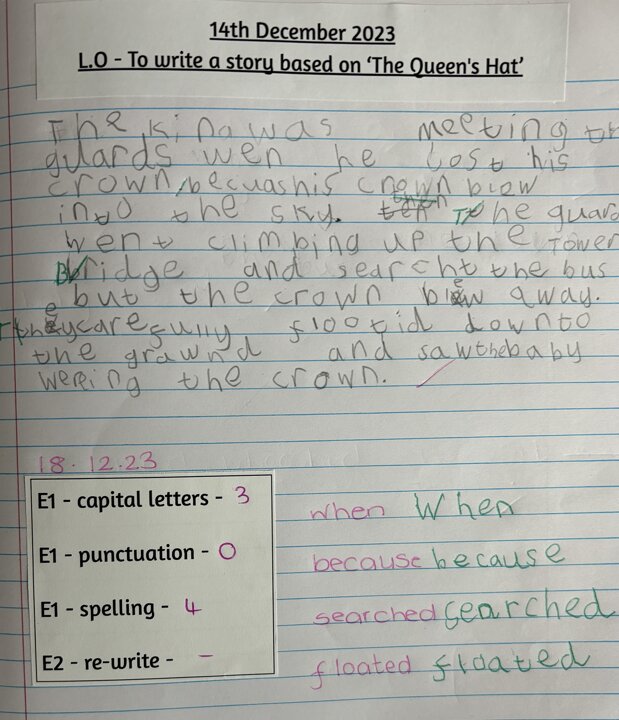 14th December 2023
L.O - To write a story based on ‘The Queen's Hat’
The king was meeting th
guards wen he lost his
crown, becuas his crown blow
into the sky. then The guard
went climbing up the Tower
Bridge and searcht the bus
but the crown blew away.
They carefully flootid down to
the grawnd and saw the baby
wereing the crown.
18.12.23
E1 - capital letters - 3
E1 - punctuation - 0
E1 - spelling - 4
E2 - re-write - –
when When
because because
searched searched
floated floated